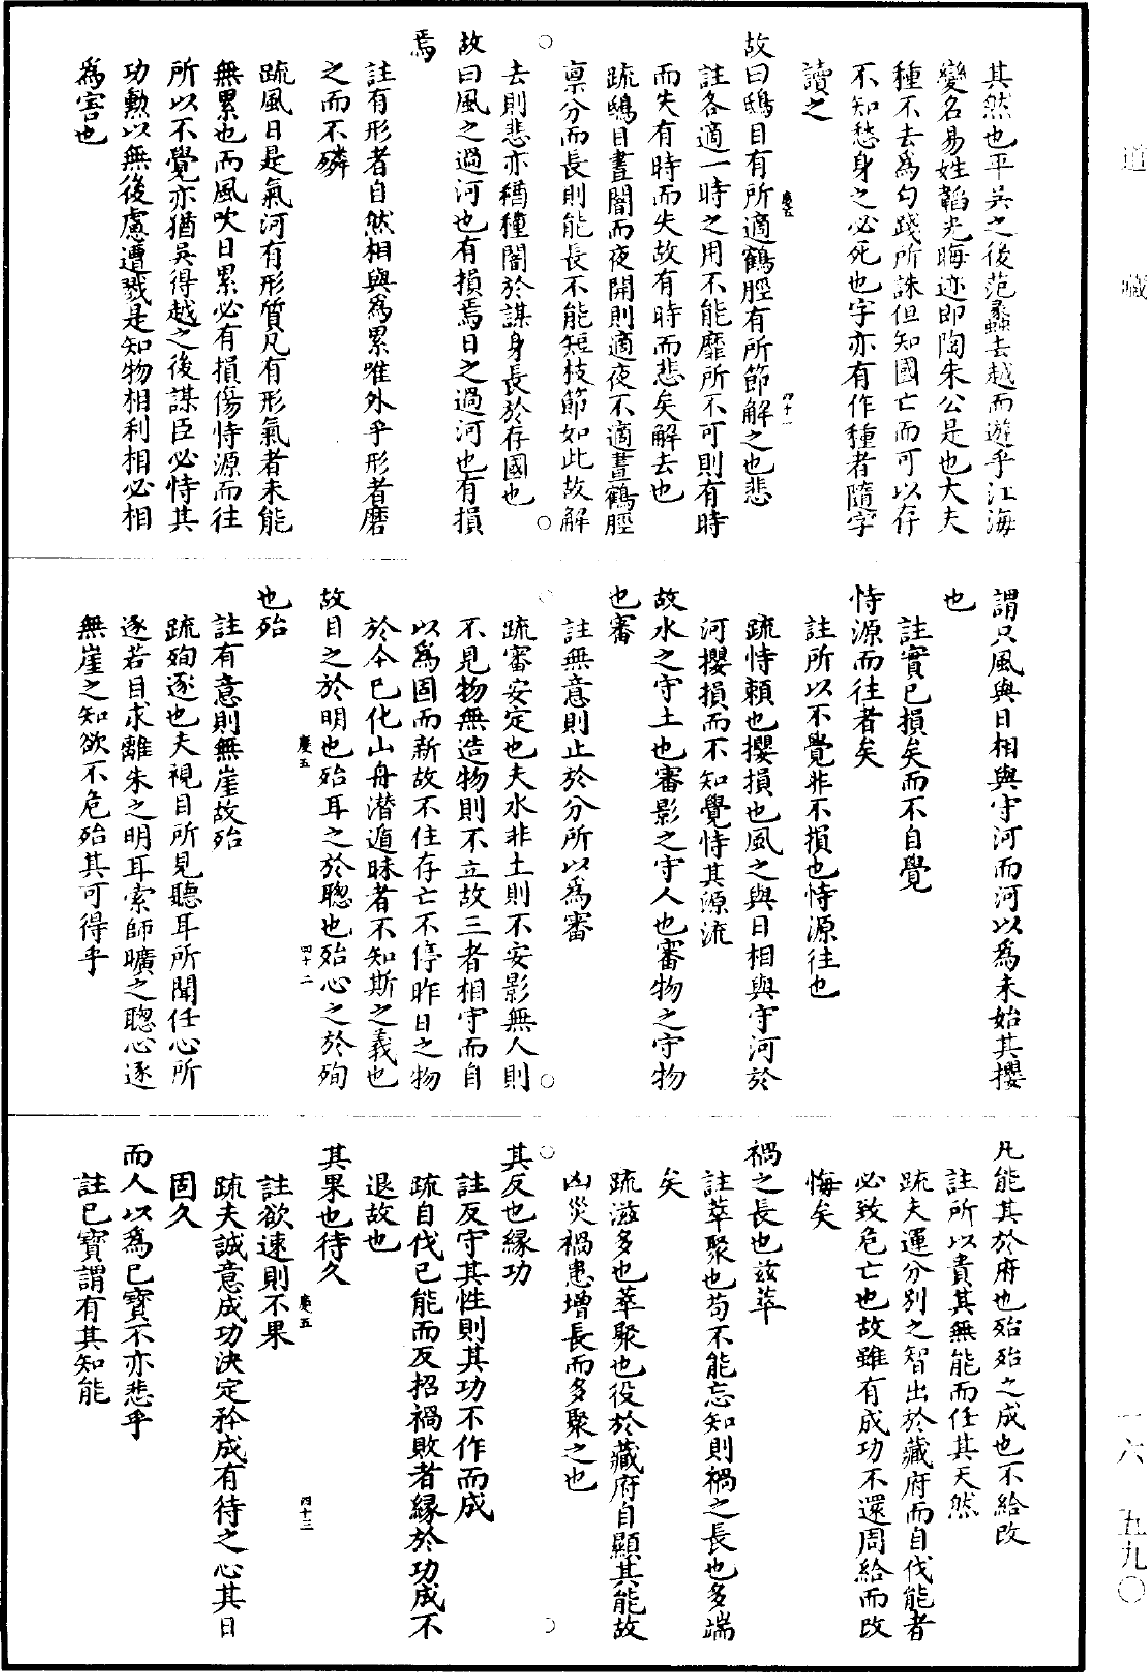 道藏
其然也平吳之後范蠡去越而遊乎江海
變名易姓韜光晦迹即陶朱公是也大夫
種不去爲勾踐所誅但知國亡而可以存
不知愁身之必死也字亦有作種者隨字
讀之
慶五
四十一
故曰鴟目有所適鶴脛有所節解之也悲
註各適一時之用不能靡所不可則有時
而失有時而失故有時而悲矣解去也
疏鴟目晝闇而夜開則適夜不適晝鶴脛
禀分而長則能長不能短枝節如此故解
去則悲亦猶種闇於謀身長於存國也
故曰風之過河也有損焉日之過河也有損
焉
註有形者自然相與爲累唯外乎形者磨
之而不磷
疏風日是氣河有形質凡有形氣者未能
無累也而風吹日累必有損傷恃源而往
所以不覺亦猶吳得越之後謀臣必恃其
功勳以無後慮遭戮是知物相利相必相
爲害也
謂只風與日相與守河而河以爲未始其攖
也
註實已損矣而不自覺
恃源而往者矣
註所以不覺非不損也恃源往也
疏恃賴也攖損也風之與日相與守河於
河攖損而不知覺恃其源流
故水之守土也審影之守人也審物之守物
也審
註無意則止於分所以爲審
疏審安定也夫水非土則不安影無人則
不見物無造物則不立故三者相守而自
以爲固而新故不住存亡不停昨日之物
於今已化山舟潜遁昧者不知斯之義也
慶五
四十二
故目之於明也殆耳之於聰也殆心之於殉
也殆
註有意則無崖故殆
疏殉逐也夫視目所見聽耳所聞任心所
逐若目求離朱之明耳索師曠之聰心逐
無崖之知欲不危殆其可得乎
凡能其於府也殆殆之成也不給改
註所以貴其無能而任其天然
疏夫運分別之智出於藏府而自伐能者
必致危亡也故雖有成功不還周給而改
悔矣
禍之長也玆萃
註萃聚也苟不能忘知則禍之長也多端
矣
疏滋多也萃聚也役於藏府自顯其能故
凶災禍患增長而多聚之也
其反也緣功
註反守其性則其功不作而成
疏自伐已能而反招禍敗者緣於功成不
退故也
其果也待久
慶五
四十三
註欲速則不果
疏夫誠意成功決定矜成有待之心其日
固久
而人以爲已寶不亦悲乎
註已寶謂有其知能
一六
五九〇